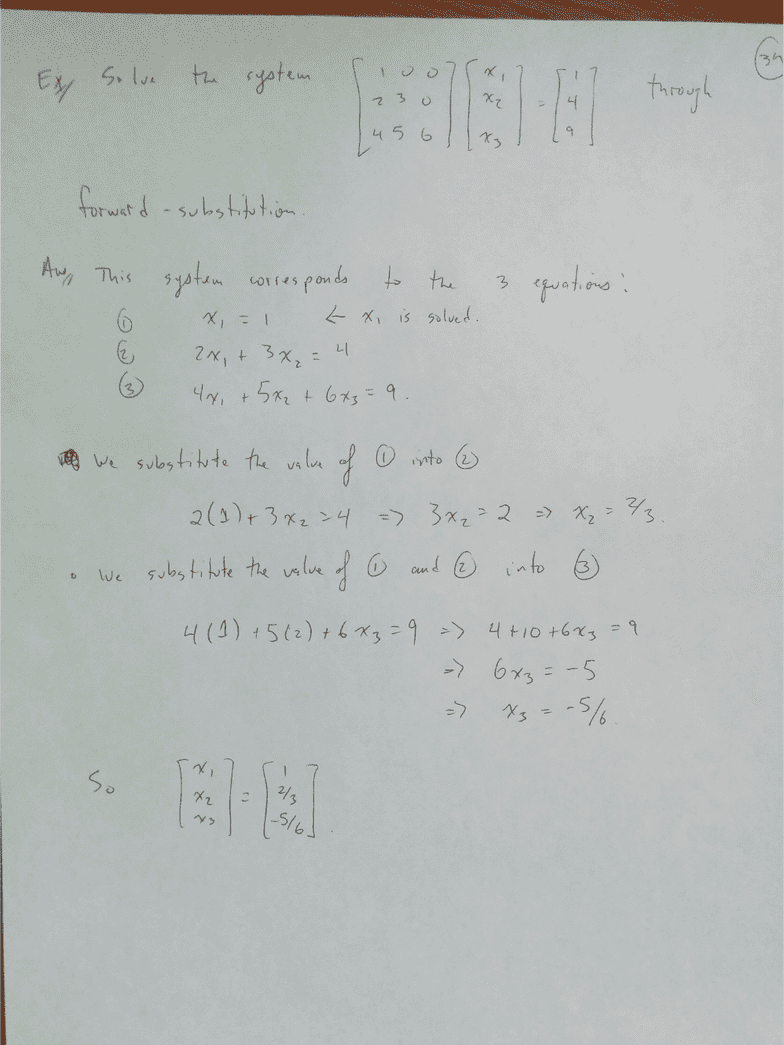 Ex, Solve the system [1 0 0; 2 3 0; 4 5 6] [x₁; x₂; x₃] = [1; 4; 9] through
34
forward-substitution.
Aw, This system corresponds to the 3 equations:
① x₁ = 1 ← x₁ is solved.
② 2x₁ + 3x₂ = 4
③ 4x₁ + 5x₂ + 6x₃ = 9.
We substitute the value of ① into ②
2(1) + 3x₂ = 4 => 3x₂ = 2 => x₂ = 2/3.
• We substitute the value of ① and ② into ③
4(1) + 5(2) + 6x₃ = 9 => 4 + 10 + 6x₃ = 9
=> 6x₃ = -5
=> x₃ = -5/6.
So [x₁; x₂; x₃] = [1; 2/3; -5/6].